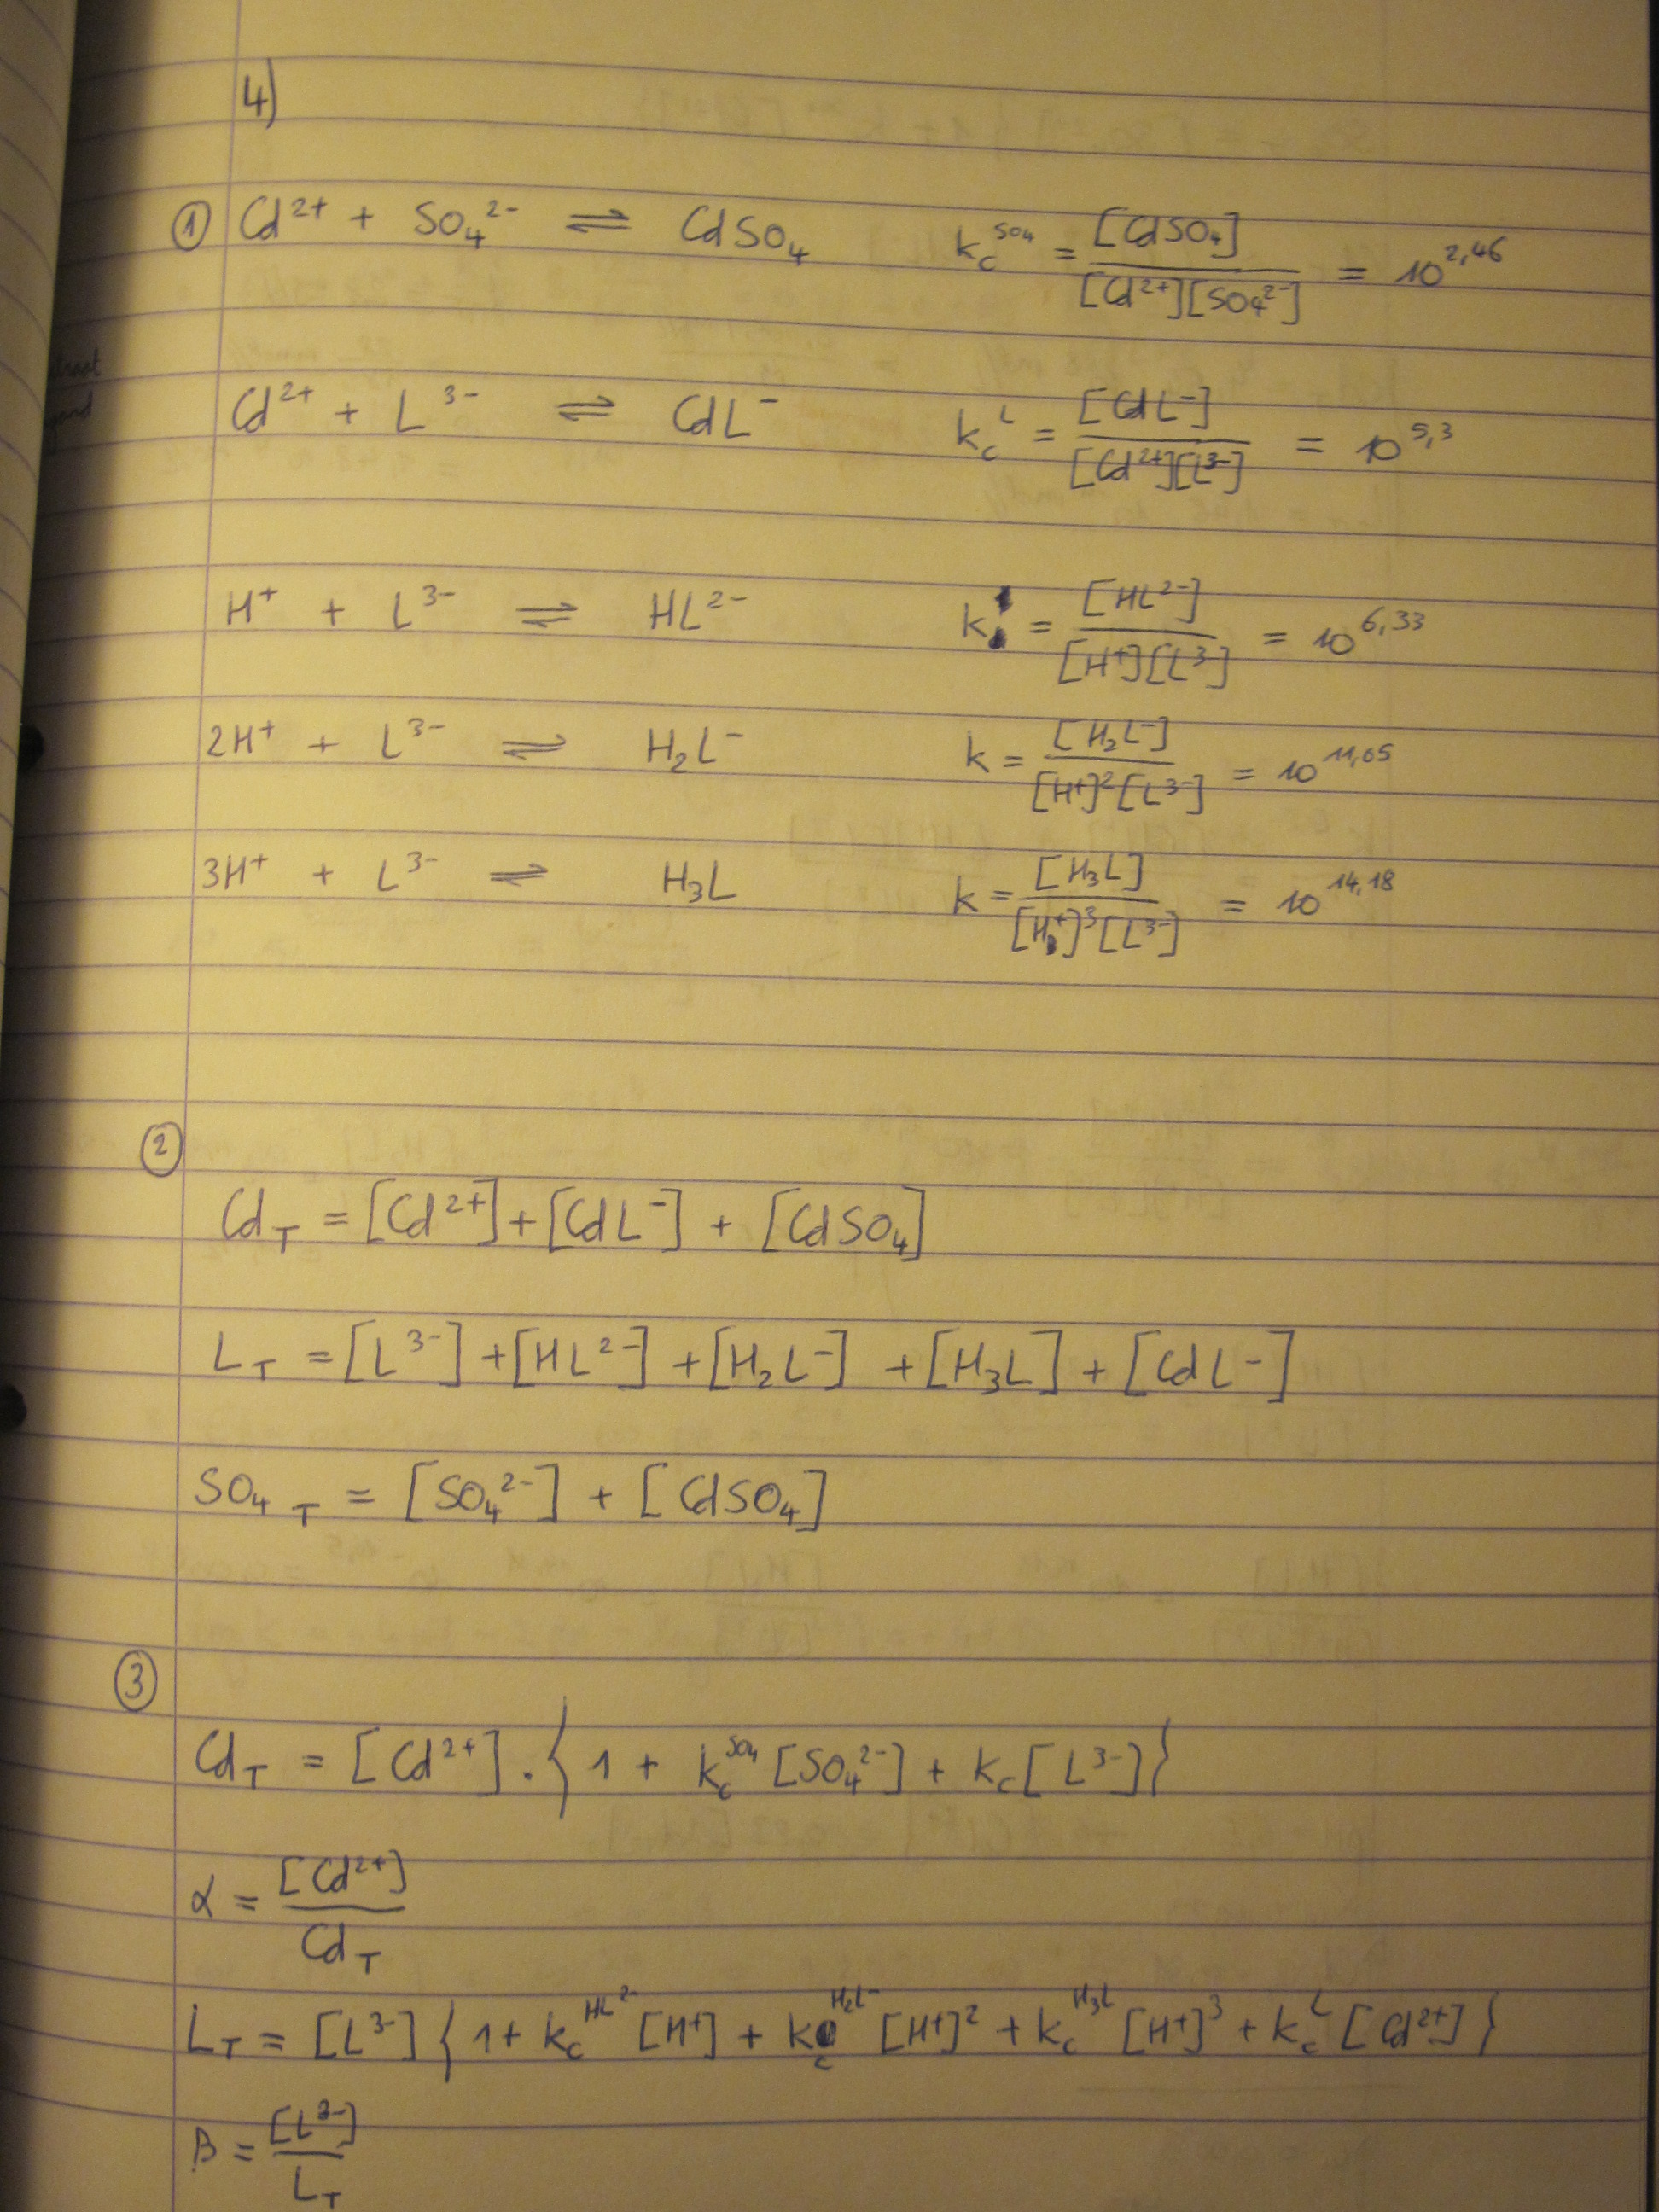 4)
① Cd²⁺ + SO₄²⁻ ⇌ CdSO₄ k_c^SO₄ = [CdSO₄] / [Cd²⁺][SO₄²⁻] = 10^2,46
Cd²⁺ + L³⁻ ⇌ CdL⁻ k_c^L = [CdL⁻] / [Cd²⁺][L³⁻] = 10^5,3
H⁺ + L³⁻ ⇌ HL²⁻ k = [HL²⁻] / [H⁺][L³⁻] = 10^6,33
2H⁺ + L³⁻ ⇌ H₂L⁻ k = [H₂L⁻] / [H⁺]²[L³⁻] = 10^11,05
3H⁺ + L³⁻ ⇌ H₃L k = [H₃L] / [H⁺]³[L³⁻] = 10^14,18
②
Cd_T = [Cd²⁺] + [CdL⁻] + [CdSO₄]
L_T = [L³⁻] + [HL²⁻] + [H₂L⁻] + [H₃L] + [CdL⁻]
SO₄ _T = [SO₄²⁻] + [CdSO₄]
③
Cd_T = [Cd²⁺] . { 1 + k_c^SO₄ [SO₄²⁻] + k_c [L³⁻] }
α = [Cd²⁺] / Cd_T
L_T = [L³⁻] { 1 + k_c^HL²⁻ [H⁺] + k_c^H₂L⁻ [H⁺]² + k_c^H₃L [H⁺]³ + k_c^L [Cd²⁺] }
β = [L³⁻] / L_T